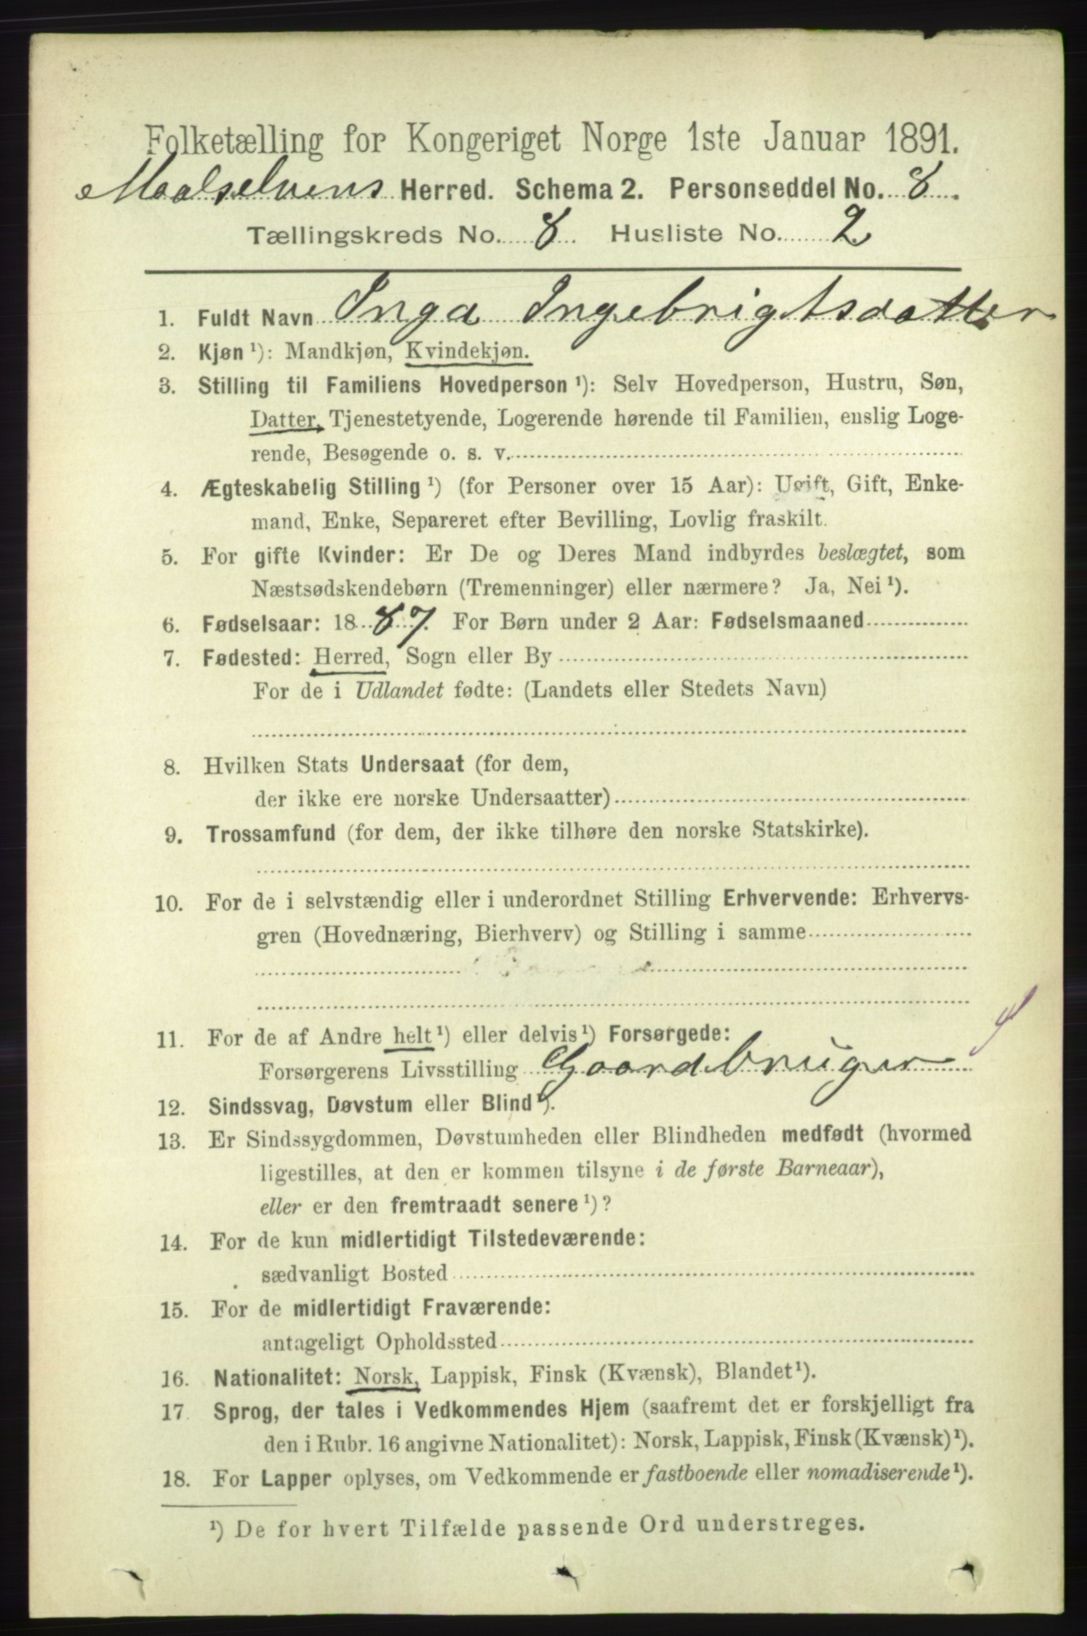 Folketælling for Kongeriget Norge 1ste Januar 1891.
Maalselvens Herred. Schema 2. Personseddel No. 8.
Tællingskreds No. 8. Husliste No. 2
1. Fuldt Navn Inga Ingebrigtsdatter
2. Kjøn ¹): Mandkjøn, Kvindekjøn.
3. Stilling til Familiens Hovedperson ¹): Selv Hovedperson, Hustru, Søn,
Datter, Tjenestetyende, Logerende hørende til Familien, enslig Loge-
rende, Besøgende o. s. v.
4. Ægteskabelig Stilling ¹) (for Personer over 15 Aar): Ugift, Gift, Enke-
mand, Enke, Separeret efter Bevilling, Lovlig fraskilt.
5. For gifte Kvinder: Er De og Deres Mand indbyrdes beslægtet, som
Næstsødskendebørn (Tremenninger) eller nærmere? Ja, Nei ¹).
6. Fødselsaar: 1887. For Børn under 2 Aar: Fødselsmaaned
7. Fødested: Herred, Sogn eller By
For de i Udlandet fødte: (Landets eller Stedets Navn)
8. Hvilken Stats Undersaat (for dem,
der ikke ere norske Undersaatter)
9. Trossamfund (for dem, der ikke tilhøre den norske Statskirke).
10. For de i selvstændig eller i underordnet Stilling Erhvervende: Erhvervs-
gren (Hovednæring, Bierhverv) og Stilling i samme
11. For de af Andre helt ¹) eller delvis ¹) Forsørgede:
Forsørgerens Livsstilling Gaardbruger
12. Sindssvag, Døvstum eller Blind ¹).
13. Er Sindssygdommen, Døvstumheden eller Blindheden medfødt (hvormed
ligestilles, at den er kommen tilsyne i de første Barneaar),
eller er den fremtraadt senere ¹)?
14. For de kun midlertidigt Tilstedeværende:
sædvanligt Bosted
15. For de midlertidigt Fraværende:
antageligt Opholdssted
16. Nationalitet: Norsk, Lappisk, Finsk (Kvænsk), Blandet ¹).
17 Sprog, der tales i Vedkommendes Hjem (saafremt det er forskjelligt fra
den i Rubr. 16 angivne Nationalitet): Norsk, Lappisk, Finsk (Kvænsk) ¹).
18. For Lapper oplyses, om Vedkommende er fastboende eller nomadiserende ¹).
¹) De for hvert Tilfælde passende Ord understreges.